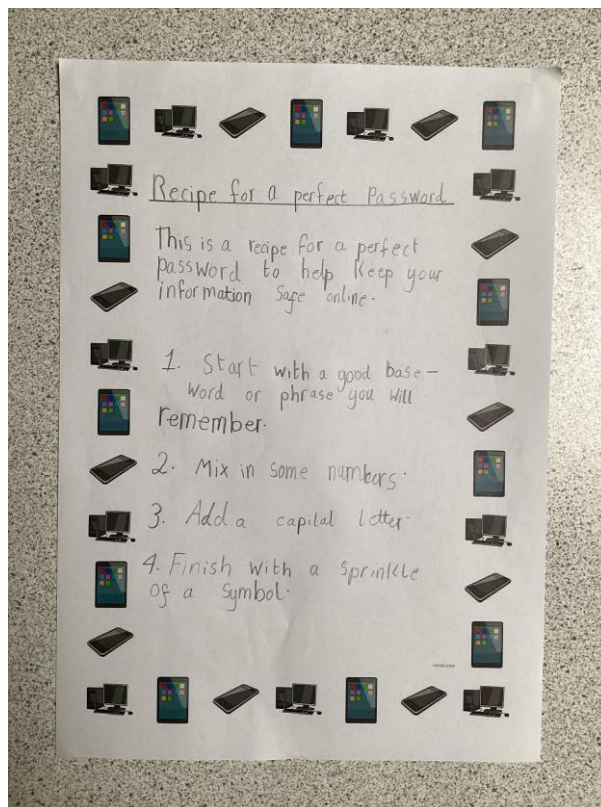 Recipe for a perfect Password
This is a recipe for a perfect
password to help keep your
information safe online.
1. Start with a good base –
word or phrase you will
remember.
2. Mix in some numbers.
3. Add a capital letter.
4. Finish with a sprinkle
of a symbol.